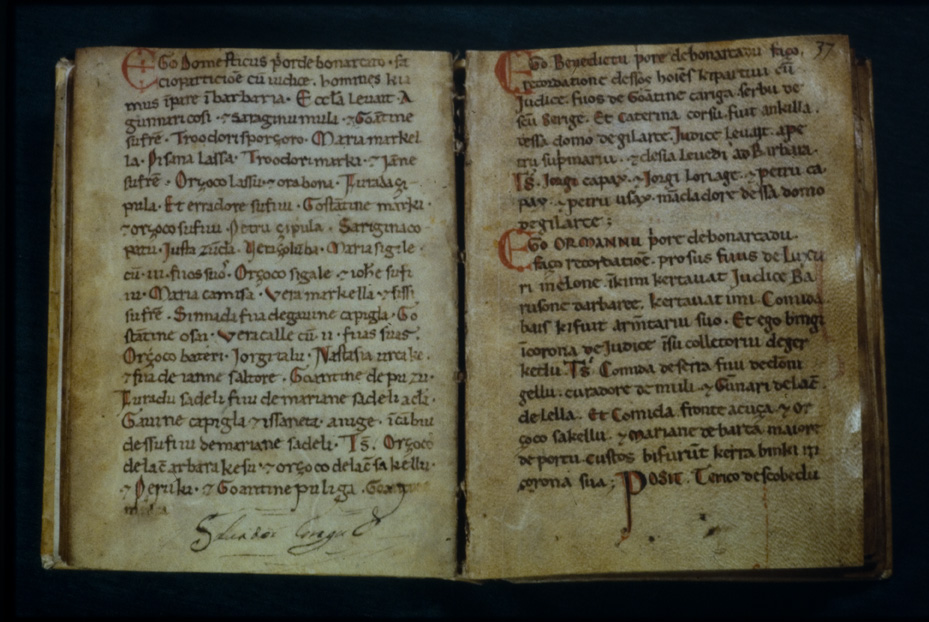 EGo Domesticus p̄orde bonarcato · fa
cio particiōe cū iudice · hom̄nes kia
mus īp̄are ī barbaria · Eccl̄a leuait · A
gunnari cosi · ⁊ saraginu muli · ⁊ Goātine
suf̄re · Troodori sporgoro · Maria markel
la · Pisana lassa · Troodori marka · ⁊ Iāne
suf̄re · Orçoco lassu · ⁊ ora bona · Iurada çi
pula · Et erradore sufiiu · Gostātine marki ·
⁊ orçoco sufiiu · Petru çipula · Sarigin aco
Iusta zucla · Maria sigale ·
cū · iii · fiios suos · Orçoco sigale · ⁊ ioh̄e sufi
iu · Maria camisa · Vera markella · ⁊ fiiu
suf̄re · Sinnada fiia de gauine capigla · Go
stātine osai · Vera calle cū · ii · fiias suas ·
Orçoco bateri · Iorgi talu · Nastasia urcike ·
⁊ fiia de ianne saltore · Goantine de puzu ·
Iuradu sadeli fiiu de mariane sadeli
Gauine capigla · ⁊ issa neta · anige · īcābiu
dessu fiiu de mariane sadeli · T̄s · Orçoco
de lac̄ arbarakesu · ⁊ orçoco de lac̄ sakellu ·
⁊ Periki · ⁊ Goantine puliga ·
37
EGo Benedictu p̄ore de bonarcadu faço ·
recordatione dessos hoīes ki partiui cū
Iudice · fiios de Goātine cariga serbu de
scū Serige · Et Caterina corsu · fuit ankilla
dessa domo de gilarce · Iudice leuait · a pe
tru sup̄inariu · ⁊ clesia leuedi ad Barbara ·
T̄s · Iorgi capay · ⁊ Iorgi loriage · ⁊ petru ca
pay · ⁊ petru usay · mācladore dessa domo
de gilarce ;
EGo ORMANNU p̄ore de bonarcadu ·
faço recordatiōe · pro sus fiios de Luxu
ri inelone · īkimi kertauat Iudice Ba
rusone darbaree · kertauat imi Comida
bais ki fuit arm̄tariu suo · Et ego bingi
īcorona de Iudice īsu collectoriu de ger
ketlu · T̄s · Comida de serra fiiu de clonī
gellu · curadore de muli · ⁊ Gunari de lac̄
de lella · Et Comida · fronte acuça · ⁊ Or
çoco sakellu · ⁊ Mariane de barca maiore
de portu · Custos bifurūt kerra binki in
corona sua ; Posit · Terico de scobedu